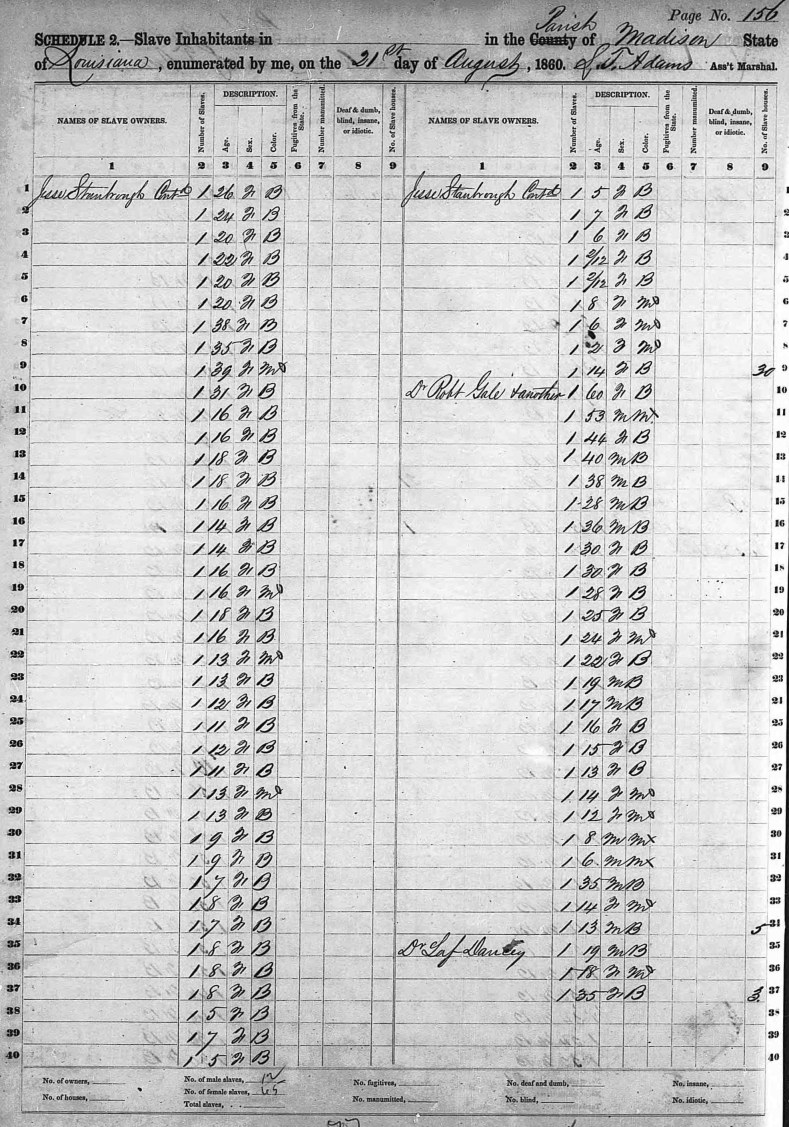 Page No. 156
SCHEDULE 2.—Slave Inhabitants in in the County Parish of Madison State
of Louisiana, enumerated by me, on the 21st day of August, 1860. S. T. Adams Ass't Marshal.
NAMES OF SLAVE OWNERS. Number of Slaves. DESCRIPTION. Age. Sex. Color. Fugitives from the State. Number manumitted. Deaf & dumb, blind, insane, or idiotic. No. of Slave houses. NAMES OF SLAVE OWNERS. Number of Slaves. DESCRIPTION. Age. Sex. Color. Fugitives from the State. Number manumitted. Deaf & dumb, blind, insane, or idiotic. No. of Slave houses.
1 2 3 4 5 6 7 8 9 1 2 3 4 5 6 7 8 9
1 Jesse Stanbrough Contd 1 26 F B Jesse Stanbrough Contd 1 5 F B 1
2 1 24 F B 1 7 F B 2
3 1 20 F B 1 6 F B 3
4 1 22 F B 1 2/12 F B 4
5 1 20 F B 1 2/12 F B 5
6 1 20 F B 1 8 F M 6
7 1 38 F B 1 6 F M 7
8 1 35 F B 1 2 F M 8
9 1 39 F M 1 14 F B 30 9
10 1 31 F B Dr Robt Gale & another 1 60 F B 10
11 1 16 F B 1 53 M M 11
12 1 16 F B 1 44 F B 12
13 1 18 F B 1 40 M B 13
14 1 18 F B 1 38 M B 14
15 1 16 F B 1 28 M B 15
16 1 14 F B 1 36 M B 16
17 1 14 F B 1 30 F B 17
18 1 16 F B 1 30 F B 18
19 1 16 F M 1 28 F B 19
20 1 18 F B 1 25 F B 20
21 1 16 F B 1 24 F M 21
22 1 13 F M 1 22 F B 22
23 1 13 F B 1 19 M B 23
24 1 12 F B 1 17 M B 24
25 1 11 F B 1 16 F B 25
26 1 12 F B 1 15 F B 26
27 1 11 F B 1 13 F B 27
28 1 13 F M 1 14 F M 28
29 1 13 F B 1 12 F M 29
30 1 9 F B 1 8 M M 30
31 1 9 F B 1 6 M M 31
32 1 7 F B 1 35 M B 32
33 1 8 F B 1 14 F M 33
34 1 7 F B 1 13 M B 5 34
35 1 8 F B Dr Laf Dancey 1 19 M B 35
36 1 8 F B 1 18 F M 36
37 1 8 F B 1 35 F B 3 37
38 1 5 F B 38
39 1 7 F B 39
40 1 5 F B 40
No. of owners, No. of male slaves, 12 No. fugitives, No. of deaf and dumb, No. of insane,
No. of houses, No. of female slaves, 65 No. manumitted, No. of blind, No. of idiotic,
Total slaves,